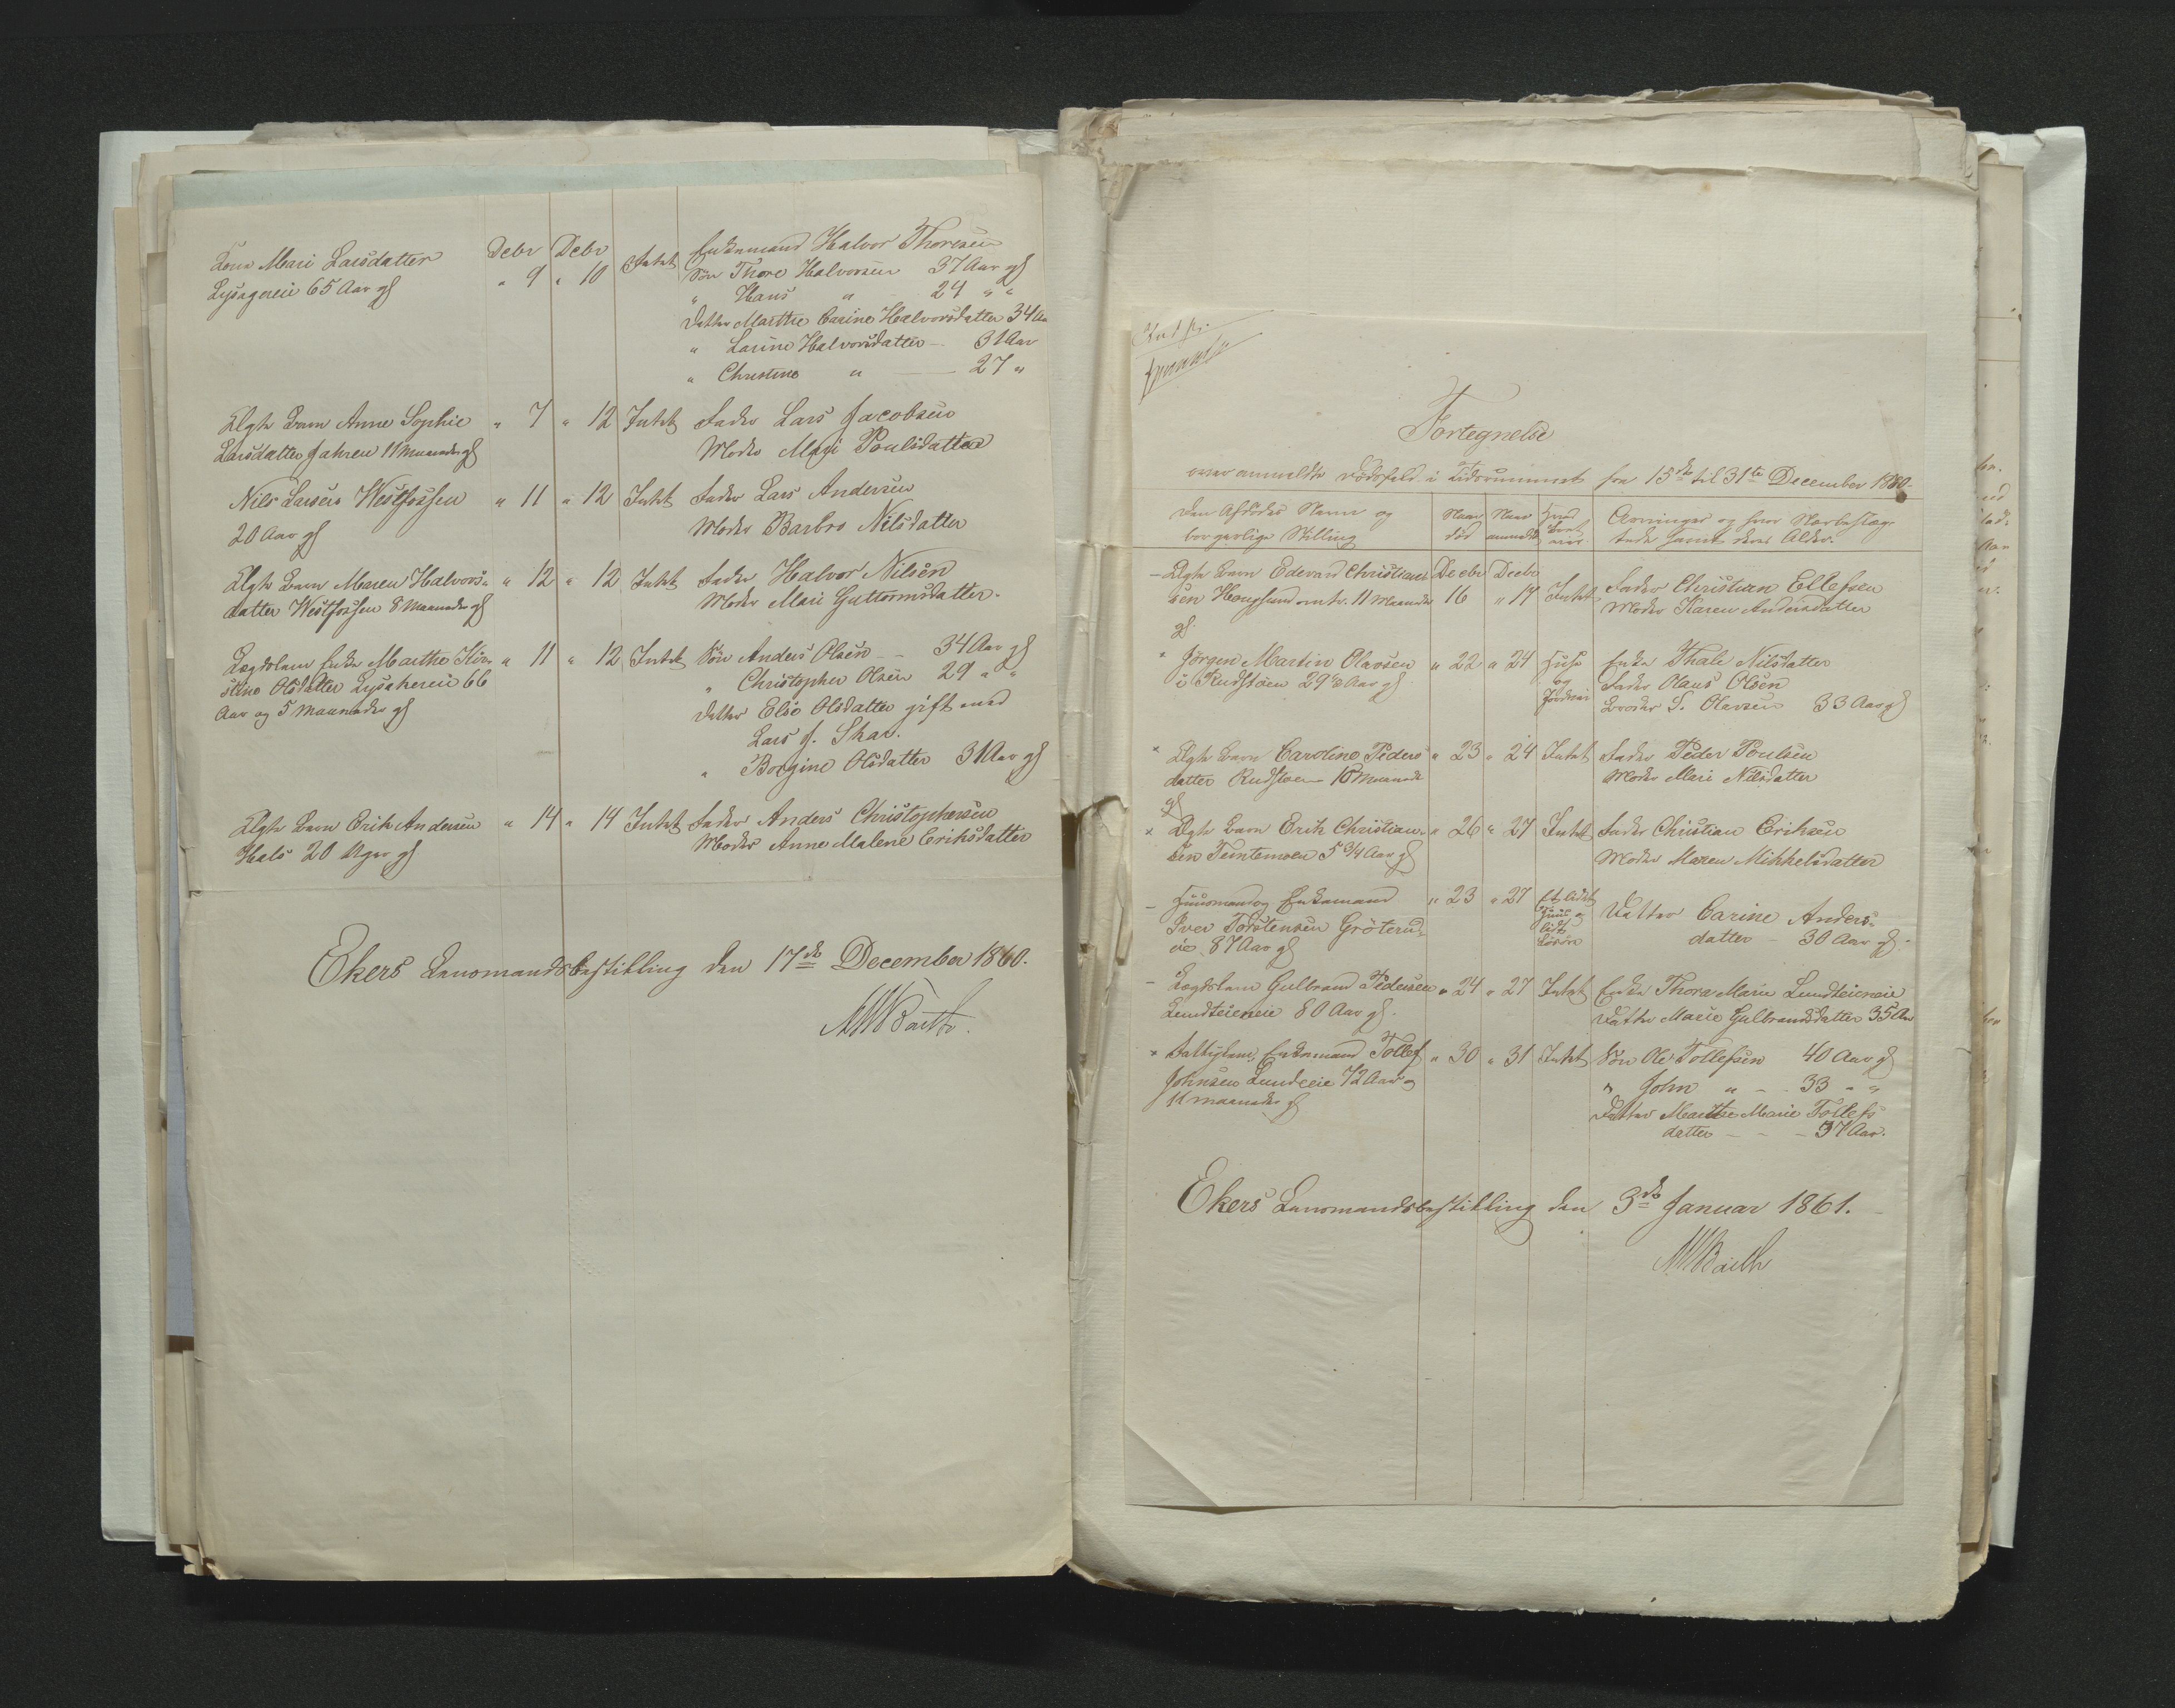 Kone Mari Larsdatter Debr Debr Intet Enkemand Halvor Thoresen
Lysagereie 65 Aar gl " 9 " 10 Søn Thore Halvorsen 37 Aar gl
" Hans " 24 " "
Datter Marthe Carine Halvorsdatter 34 Aar
" Larine Halvorsdatter – 31 Aar
" Christine " — 27 "
Ægte Barn Anne Sophie " 7 " 12 Intet Fader Lars Jacobsen
Larsdatter Jahren 11 Maaneder gl Moder Mari Poulsdatter
Nils Larsen Westfossen " 11 " 12 Intet Fader Lars Andersen
20 Aar gl Moder Barbro Nilsdatter
Ægte Barn Maren Halvors- " 12 " 12 Intet Fader Halvor Nilsen
datter Westfossen 8 Maaneder gl Moder Mari Guttormsdatter.
Lægdslem Enke Marthe Kir- " 11 " 12 Intet Søn Anders Olsen – – 34 Aar gl
stine Olsdatter Lysakereie 66 " Christopher Olsen 29 " "
Aar og 5 Maaneder gl Datter Else Olsdatter gift med
Lars J. Skar.
" Borgine Olsdatter 31 Aar gl
Ægte Barn Erik Andersen " 14 " 14 Intet Fader Anders Christophersen
Hals 20 Uger gl Moder Anne Malene Eriksdatter
Ekers Lensmandsbestilling den 17de December 1860.
Fortegnelse
over anmeldte Dødsfald i Tidsrummet fra 15de til 31te December 1860.
Den Afdødes Navn og Naar Naar Hvad Arvinger og hvor Nærbeslæg-
borgerlige Stilling død anmeldt tede samt deres Alder.
– Ægte Barn Edevard Christian- Decbr Decbr
sen Hougsund omtr. 11 Maaneder 16 " 17 Intet Fader Christian Ellefsen
gl. Moder Karen Andersdatter
" Jørgen Martin Olavsen " 22 " 24 Huse Enke Thale Nilsdatter
i Rudstøen 29½ Aar gl og Fader Olaus Olsen
Jordvei Broder S. Olavsen 33 Aar gl
× Ægte Barn Caroline Peders- " 23 " 24 Intet Fader Peder Poulsen
datter Rudstøen 10 Maaneder Moder Mari Nilsdatter
gl
× Ægte Barn Erik Christian- " 26 " 27 Intet Fader Christian Eriksen
sen Temtemoen 5¾ Aar gl Moder Maren Mikkelsdatter
– Huusmand og Enkemand " 23 " 27 Et lidet Datter Carine Anders-
Iver Torstensen Grøterud- Huus og datter – 30 Aar gl.
eie 87 Aar gl lidt
Løsøre
– Lægdslem Gulbrand Pedersen " 24 " 27 Intet Enke Thora Marie Lundteieneie
Lundteieneie 80 Aar gl. Datter Marie Gulbrandsdatter 35 Aar
× Fattiglem, Enkemand Tollef " 30 " 31 Intet Søn Ole Tollefsen 40 Aar gl
Johnsen Lundeeie 72 Aar og " John " – 33 " "
11 Maaneder gl Datter Marthe Marie Tollefs-
datter – – – 37 Aar.
Ekers Lensmandsbestilling den 3de Januar 1861.